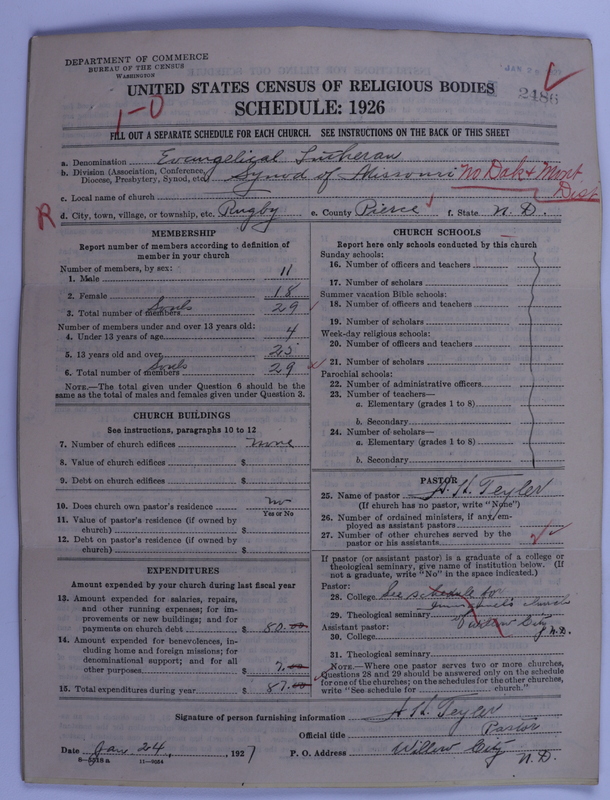 DEPARTMENT OF COMMERCE
BUREAU OF THE CENSUS
WASHINGTON
JAN 26
2486
UNITED STATES CENSUS OF RELIGIOUS BODIES
1-0
SCHEDULE: 1926
FILL OUT A SEPARATE SCHEDULE FOR EACH CHURCH. SEE INSTRUCTIONS ON THE BACK OF THIS SHEET
a. Denomination Evangelical Lutheran
b. Division (Association, Conference, Diocese, Presbytery, Synod, etc.) Synod of Missouri No Dak & Mont. Dist
c. Local name of church
R d. City, town, village, or township, etc. Rugby e. County Pierce f. State N. D.
MEMBERSHIP
Report number of members according to definition of
member in your church
Number of members, by sex:
1. Male 11
2. Female 18
3. Total number of members Souls 29
Number of members under and over 13 years old:
4. Under 13 years of age 4
5. 13 years old and over 25
6. Total number of members Souls 29
NOTE.—The total given under Question 6 should be the
same as the total of males and females given under Question 3.
CHURCH BUILDINGS
See instructions, paragraphs 10 to 12
7. Number of church edifices none
8. Value of church edifices $
9. Debt on church edifices $
10. Does church own pastor's residence no
Yes or No
11. Value of pastor's residence (if owned by
church) $
12. Debt on pastor's residence (if owned by
church) $
EXPENDITURES
Amount expended by your church during last fiscal year
13. Amount expended for salaries, repairs,
and other running expenses; for im-
provements or new buildings; and for
payments on church debt $ 80.00
14. Amount expended for benevolences, in-
cluding home and foreign missions; for
denominational support; and for all
other purposes 7.00
15. Total expenditures during year $ 87.00
CHURCH SCHOOLS
Report here only schools conducted by this church
Sunday schools:
16. Number of officers and teachers
17. Number of scholars
Summer vacation Bible schools:
18. Number of officers and teachers
19. Number of scholars
Week-day religious schools:
20. Number of officers and teachers
21. Number of scholars
Parochial schools:
22. Number of administrative officers
23. Number of teachers—
a. Elementary (grades 1 to 8)
b. Secondary
24. Number of scholars—
a. Elementary (grades 1 to 8)
b. Secondary
PASTOR
25. Name of pastor H. H. Teyler
(If church has no pastor, write "None")
26. Number of ordained ministers, if any, em-
ployed as assistant pastors
27. Number of other churches served by the
pastor or his assistants
If pastor (or assistant pastor) is a graduate of a college or
theological seminary, give name of institution below. (If
not a graduate, write "No" in the space indicated.)
Pastor:
28. College See schedule for
29. Theological seminary Immanuel's church
Assistant pastor: Willow City
30. College N. D.
31. Theological seminary
NOTE.—Where one pastor serves two or more churches,
Questions 28 and 29 should be answered only on the schedule
for one of the churches; on the schedules for the other churches,
write "See schedule for church."
Signature of person furnishing information H. H. Teyler
Official title Pastor
Date Jan. 24, 1927 P. O. Address Willow City N. D.
8—5319 a 11—9264